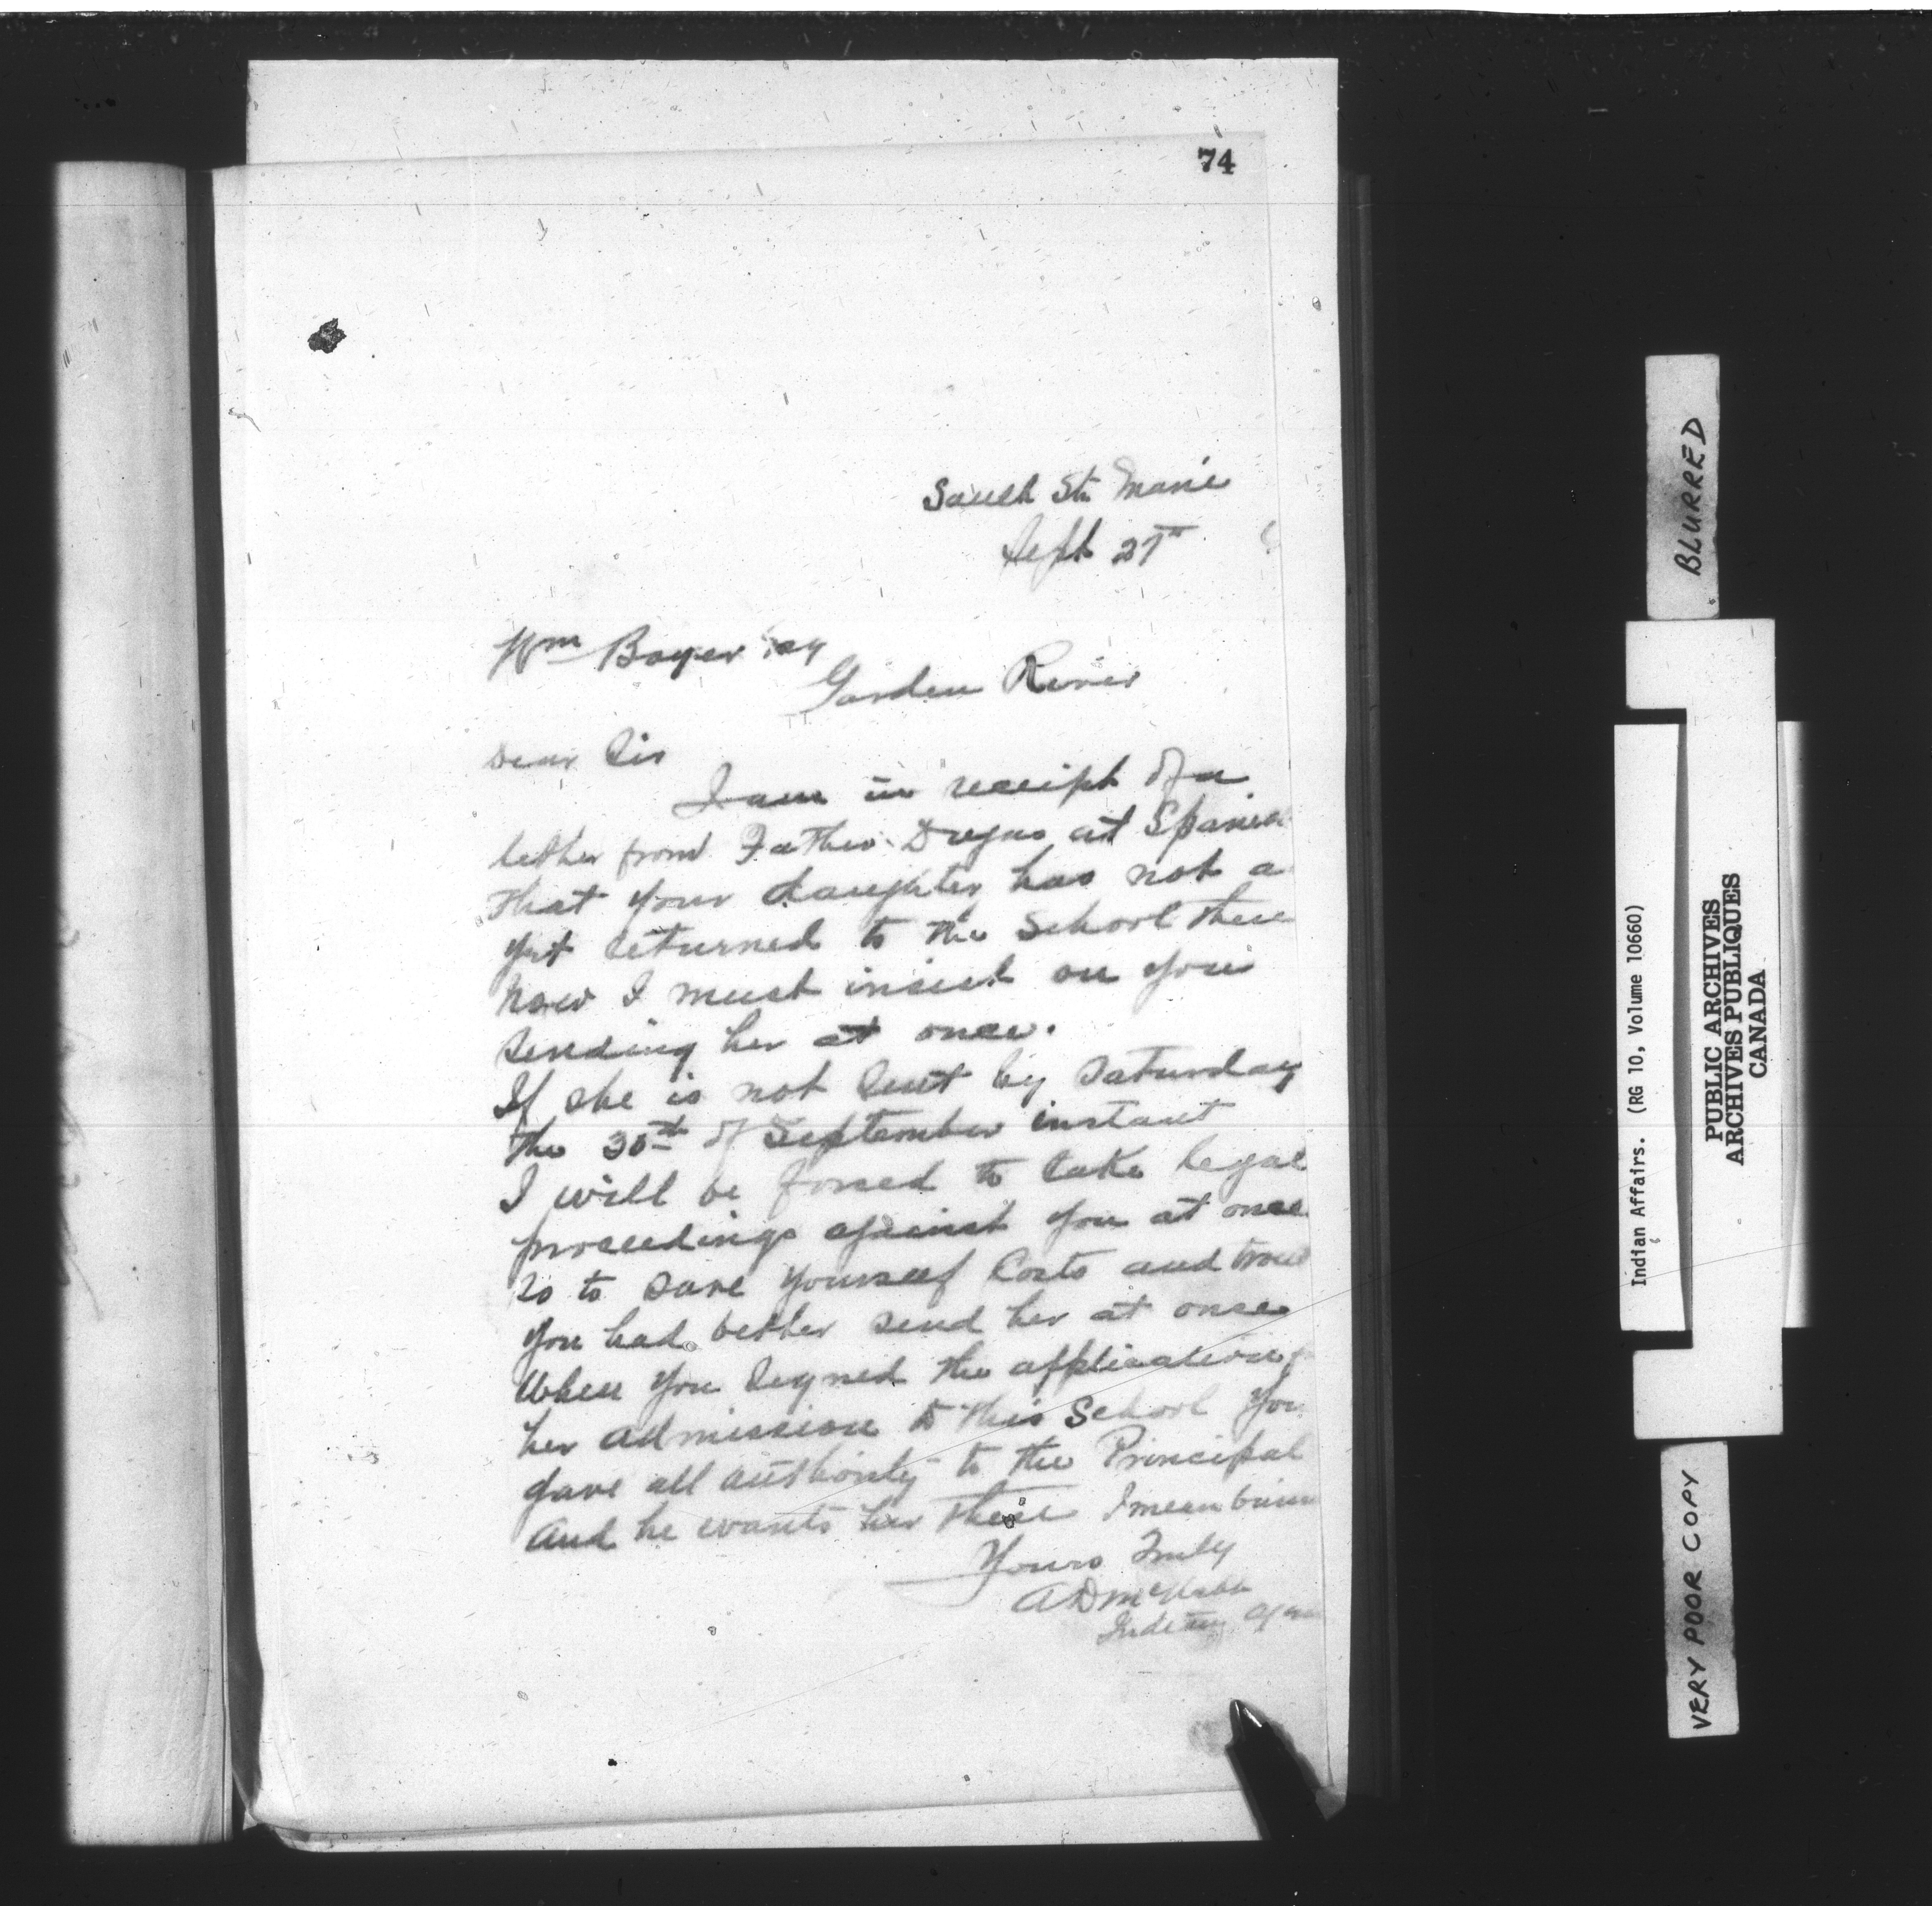 74
Sault Ste Marie
Sept 27th
Wm Boyer Esq
Garden River
Dear Sir
I am in receipt of a
letter from Father Dugas at Spanish
that your daughter has not a
yet returned to the School there
Now I must insist on your
sending her at once.
If she is not sent by Saturday
the 30th of September instant
I will be forced to take legal
proceedings against you at once
So to save yourself Costs and trou
you had better send her at once
When you signed the application
her admission to this School you
gave all authority to the Principal
and he wants her there I mean
Yours Truly
A D McNabb
Indian Agen
BLURRED
Indian Affairs. (RG 10, Volume 10660)
PUBLIC ARCHIVES
ARCHIVES PUBLIQUES
CANADA
VERY POOR COPY